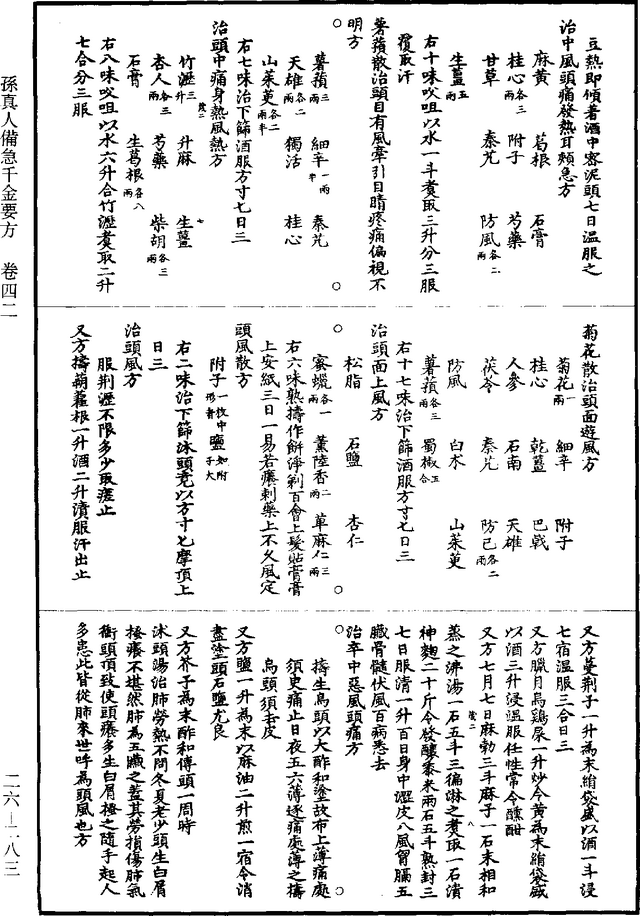 孫真人備急千金要方　卷四二
豆熱即傾著酒中密泥頭七日溫服之
治中風頭痛發熱耳頰急方
麻黃　葛根　石膏
桂心各三兩　附子　芍藥
甘草　秦艽　防風各二兩
生薑五兩
右十味㕮咀以水一斗煑取三升分三服
覆取汗
薯蕷散治頭目有風牽引目睛疼痛偏視不
明方
薯蕷三兩　細辛一兩半　秦艽
天雄各二兩　獨活　桂心
山茱萸各二兩半
右七味治下篩酒服方寸匕日三
治頭中痛身熱風熱方
竹瀝三升　升麻　生薑
杏人各三兩　芍藥　柴胡各三兩
石膏　生葛根各八兩
右八味㕮咀以水六升合竹瀝煑取二升
七合分三服
菊花散治頭面遊風方
菊花一兩　細辛　附子
桂心　乾薑　巴戟
人參　石南　天雄
茯苓　秦艽　防己各二兩
防風　白术　山茱萸
薯蕷各三兩　蜀椒五合
右十七味治下篩酒服方寸匕日三
治頭面上風方
松脂　石鹽　杏仁
蜜蠟各一兩　薰陸香二兩　萆麻仁三兩
右六味熟擣作餅淨剃百會上髮貼膏膏
上安紙三日一易若癢刺藥上不久風定
頭風散方
附子一枚中形者　鹽如附子大
右二味治下篩沐頭竟以方寸匕摩頂上
日三
治頭風方
服荆瀝不限多少取瘥止
又方擣蒴藋根一升酒二升漬服汗出止
又方蔓荆子一升為末絹袋盛以酒一斗浸
七宿溫服三合日三
又方臘月烏鷄屎一升炒令黃為末絹袋盛
以酒三升浸溫服任性常令醺酣
又方七月七日麻勃三斗麻子一石末相和
蒸之沸湯一石五斗三徧淋之煑取一石漬
神麴二十斤令發釀黍米兩石五斗熟封三
七日服清一升百日身中澀皮八風胷膈五
臟骨髓伏風百病悉去
治卒中惡風頭痛方
擣生烏頭以大酢和塗故布上薄痛處
須臾痛止日夜五六薄逐痛處薄之擣
烏頭須去皮
又方鹽一升為末以麻油二升煎一宿令消
盡塗頭石鹽尤良
又方芥子為末酢和傅頭一周時
沐頭湯治肺勞熱不問冬夏老少頭生白屑
搔癢不堪然肺為五臟之蓋其勞損傷肺氣
衝頭頂致使頭癢多生白屑搔之隨手起人
多患此皆從肺來世呼為頭風也方
二六—二八三